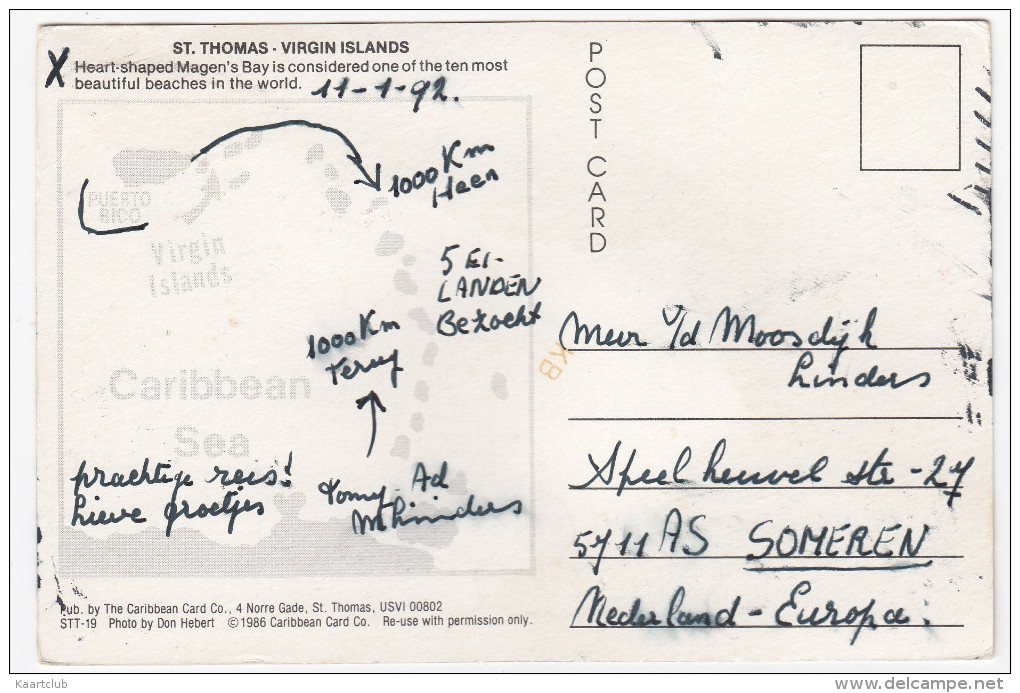 ST. THOMAS - VIRGIN ISLANDS
X Heart-shaped Magen's Bay is considered one of the ten most
beautiful beaches in the world. 11-1-92.
POST CARD
1000 Km
Heen
PUERTO
RICO
Virgin
Islands
5 EI-
LANDEN
Bezocht
1000 Km
Terug
Caribbean
Sea
prachtige reis!
Lieve groetjes
Ad
Linders
KB
Mevr v/d Moosdijk
Linders
Speelheuvel str - 27
5711 AS SOMEREN
Nederland - Europa.
Pub. by The Caribbean Card Co., 4 Norre Gade, St. Thomas, USVI 00802
STT-19 Photo by Don Hebert ©1986 Caribbean Card Co. Re-use with permission only.
Kaartclub
delcampe.net